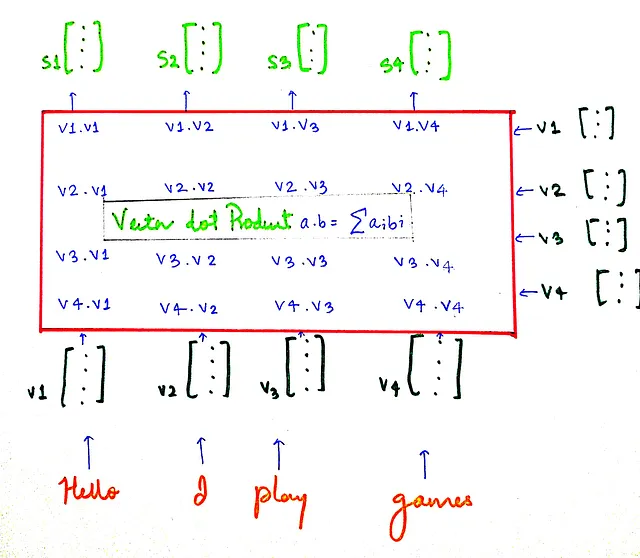 S1 S2 S3 S4
v1.v1 v1.v2 v1.v3 v1.v4 ← v1
v2.v1 v2.v2 v2.v3 v2.v4 ← v2
Vector dot Product a.b = ∑aibi
← v3
v3.v1 v3.v2 v3.v3 v3.v4
v4.v1 v4.v2 v4.v3 v4.v4 ← v4
v1 v2 v3 v4
Hello I play games